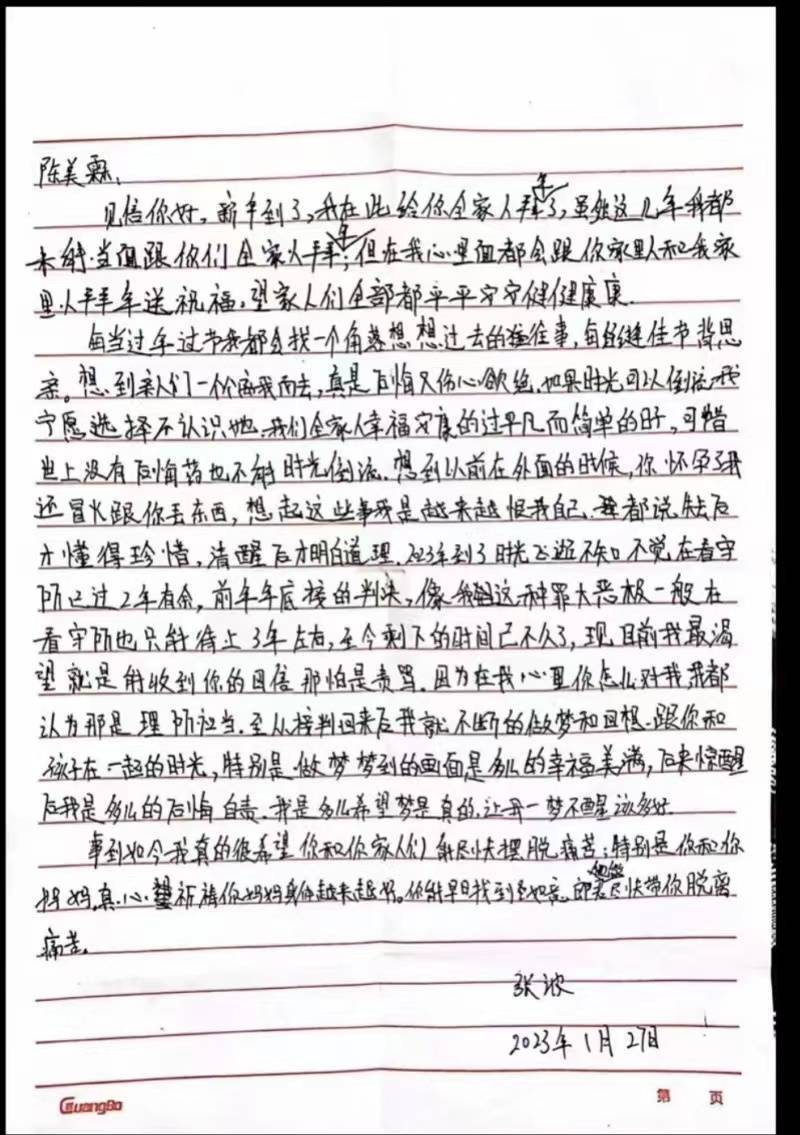 陈美霖:
见信你好,新年到了,我在此给你全家人拜年了,虽然这几年我都
未能当面跟你们全家人拜年;但在我心里面都会跟你家里人和我家
里人拜年送祝福,望家人们全部都平平安安健健康康.
每当过年过节我都会找一个角落想想过去的往事,每逢佳节背思
亲。想到亲人们一个个离我而去,真是后悔又伤心欲绝.如果时光可以倒流我
宁愿选择不认识她.我们全家人幸福安康的过平凡而简单的日子,可惜
世上没有后悔药也不能时光倒流.想到以前在外面的时候,你怀孕了我
还冒火跟你丢东西,想起这些事我是越来越恨我自己.都说失去后
才懂得珍惜,清醒后才明白道理.2023年到了时光飞逝不知不觉在看守
所已过2年有余,前年年底接的判决,像我这种罪大恶极一般在
看守所也只能待上3年左右,至今剩下的时间已不久了,现目前我最渴
望就是能收到你的回信那怕是责骂.因为在我心里你怎么对我我都
认为那是理所应当.至从接判回来后我就不断的做梦和回想.跟你和
孩子在一起的时光,特别是做梦梦到的画面是多么的幸福美满,后来惊醒
后我是多么的后悔自责.我是多么希望梦是真的.让我一梦不醒该多好.
事到如今我真的很希望你和你家人们能尽快摆脱痛苦;特别是你和你
妈妈.真心望祈祷你妈妈身体越来越好。你能早日找到如意郎君他能尽快带你脱离
痛苦.
张波
2023年1月27日
GuangBo
第 页